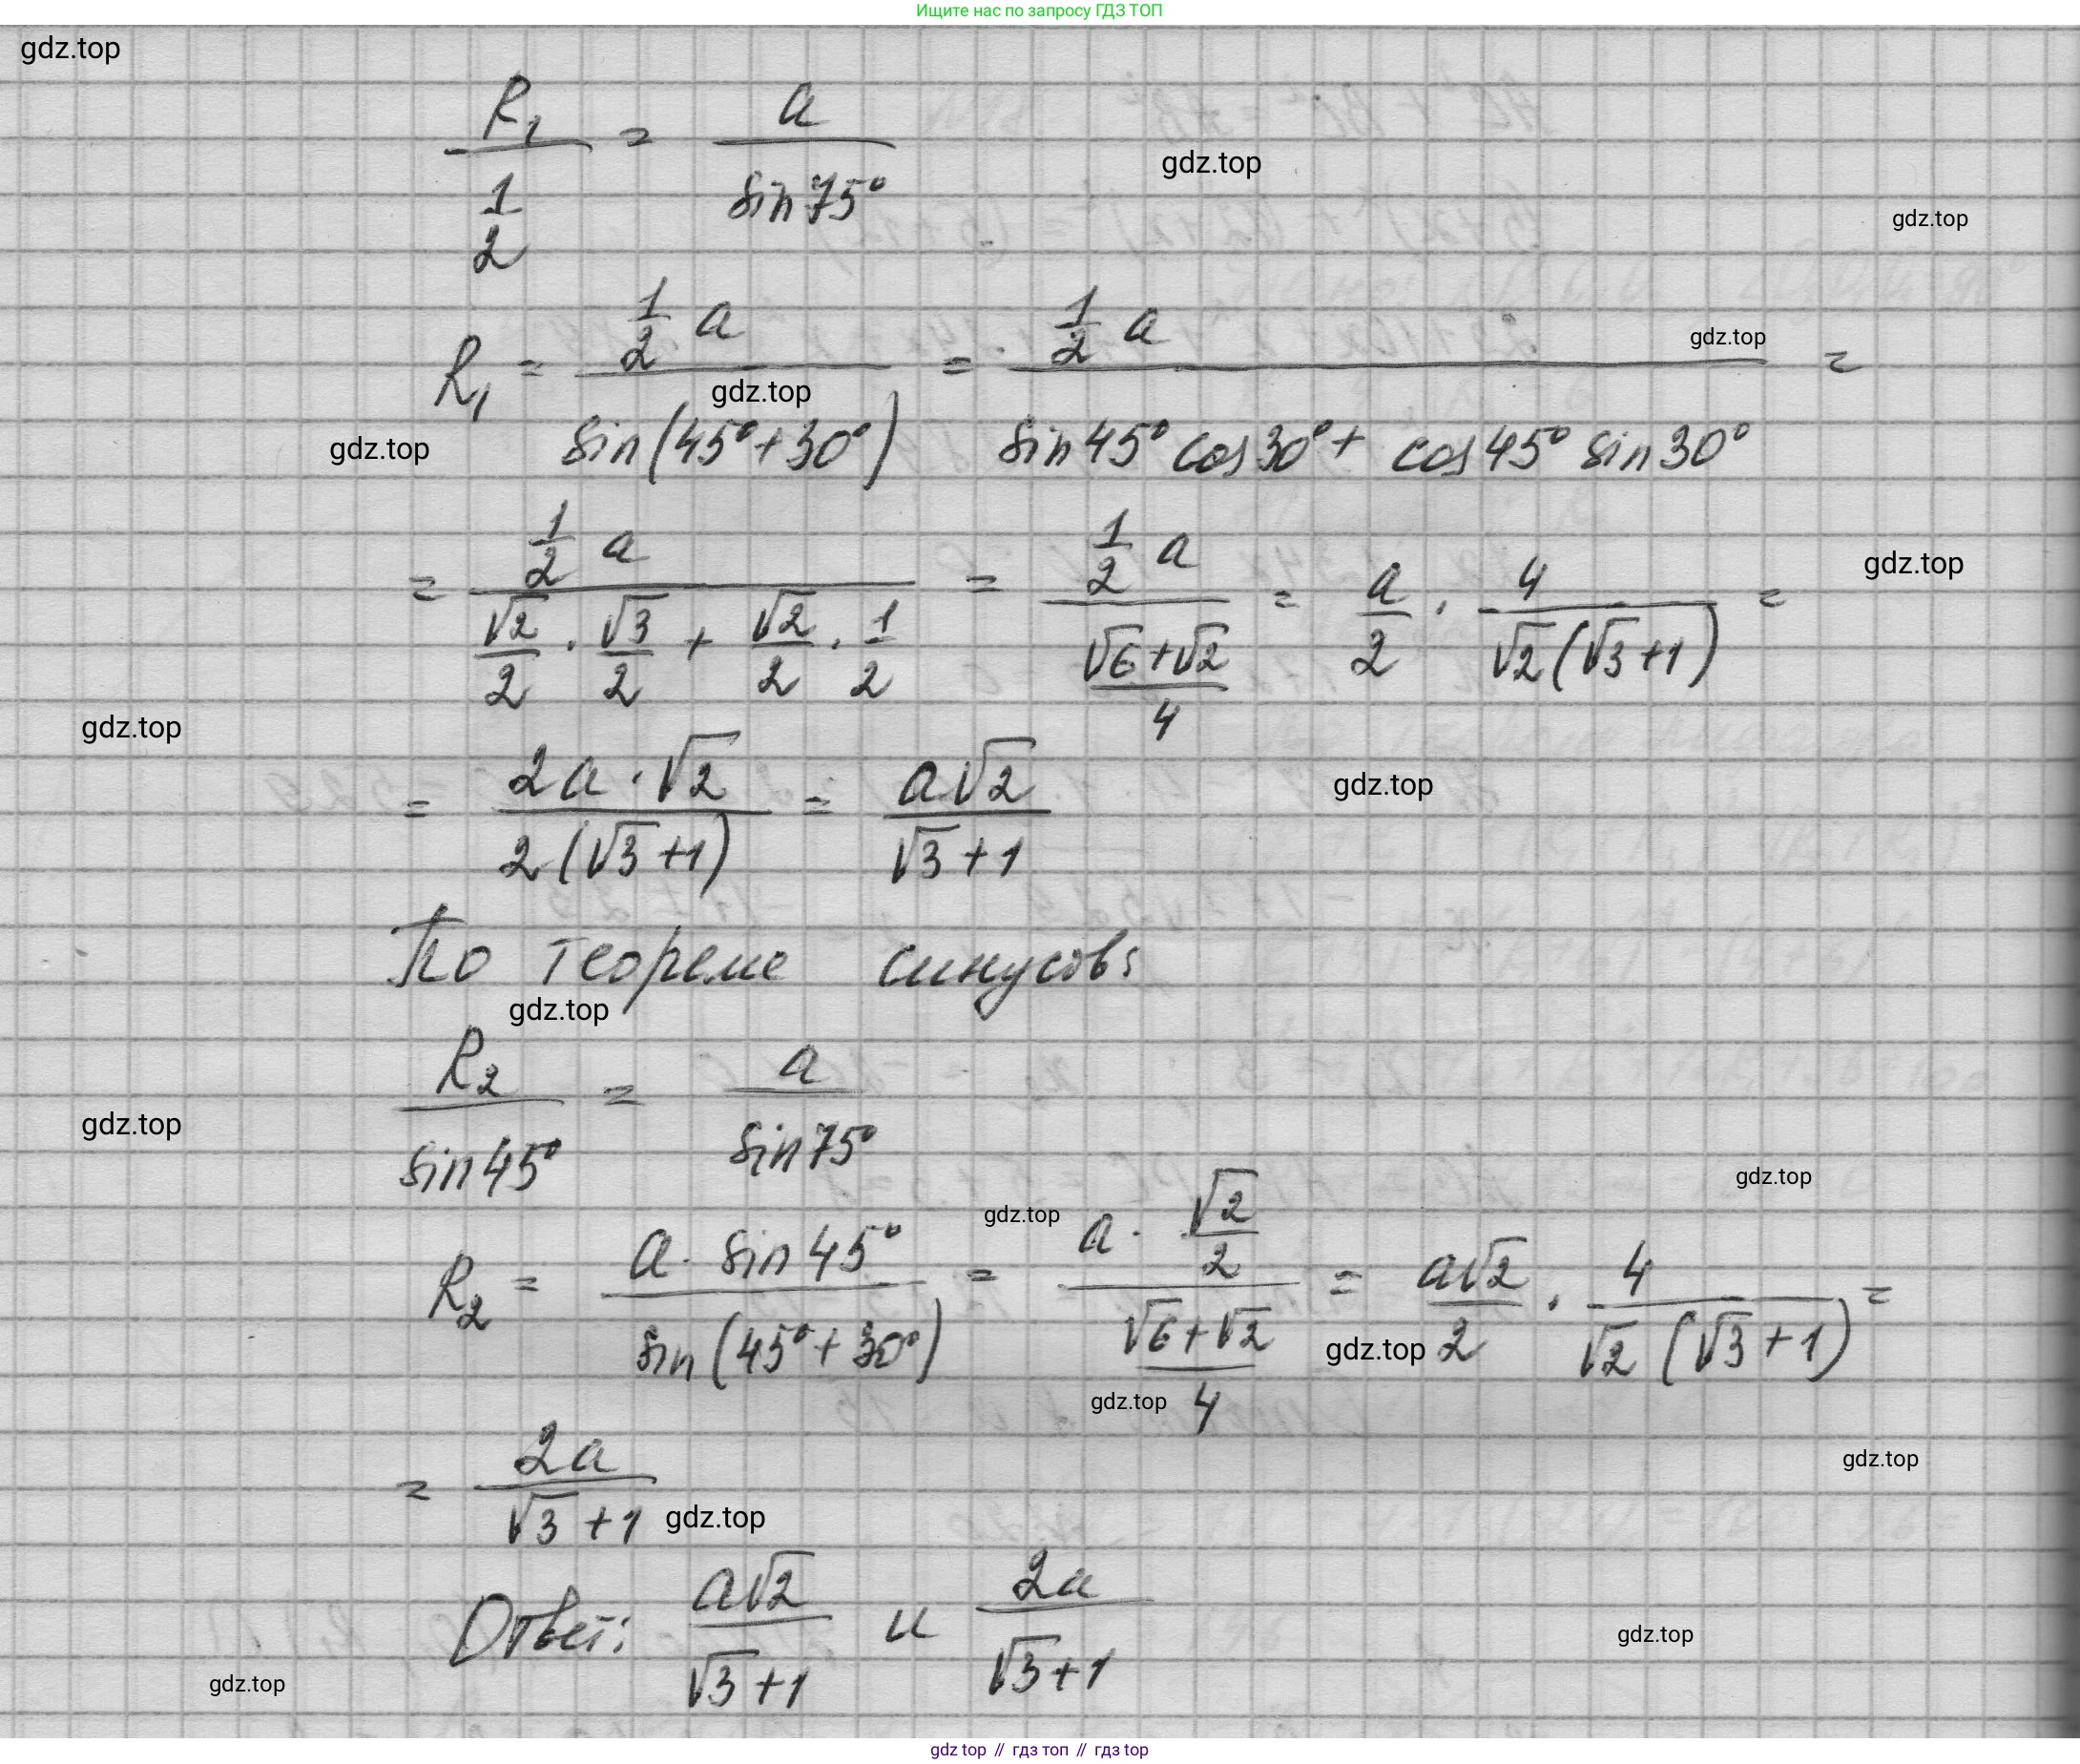 Ищите нас по запросу ГДЗ ТОП
gdz.top
R₁/(1/2) = a/sin75°
gdz.top
gdz.top
R₁ = (1/2 a)/sin(45°+30°) = (1/2 a)/(sin45° cos30° + cos45° sin30°) =
gdz.top
gdz.top
gdz.top
= (1/2 a)/(√2/2 · √3/2 + √2/2 · 1/2) = (1/2 a)/((√6+√2)/4) = a/2 · 4/(√2(√3+1)) =
gdz.top
gdz.top
= (2a·√2)/(2(√3+1)) = a√2/(√3+1)
gdz.top
По теореме синусов:
gdz.top
R₂/sin45° = a/sin75°
gdz.top
gdz.top
gdz.top
R₂ = (a· sin45°)/sin(45°+30°) = (a· √2/2)/((√6+√2)/4) = a√2/2 · 4/(√2(√3+1)) =
gdz.top
gdz.top
gdz.top
= 2a/(√3+1)
gdz.top
Ответ: a√2/(√3+1) и 2a/(√3+1)
gdz.top
gdz.top
gdz top // гдз топ // гдз top